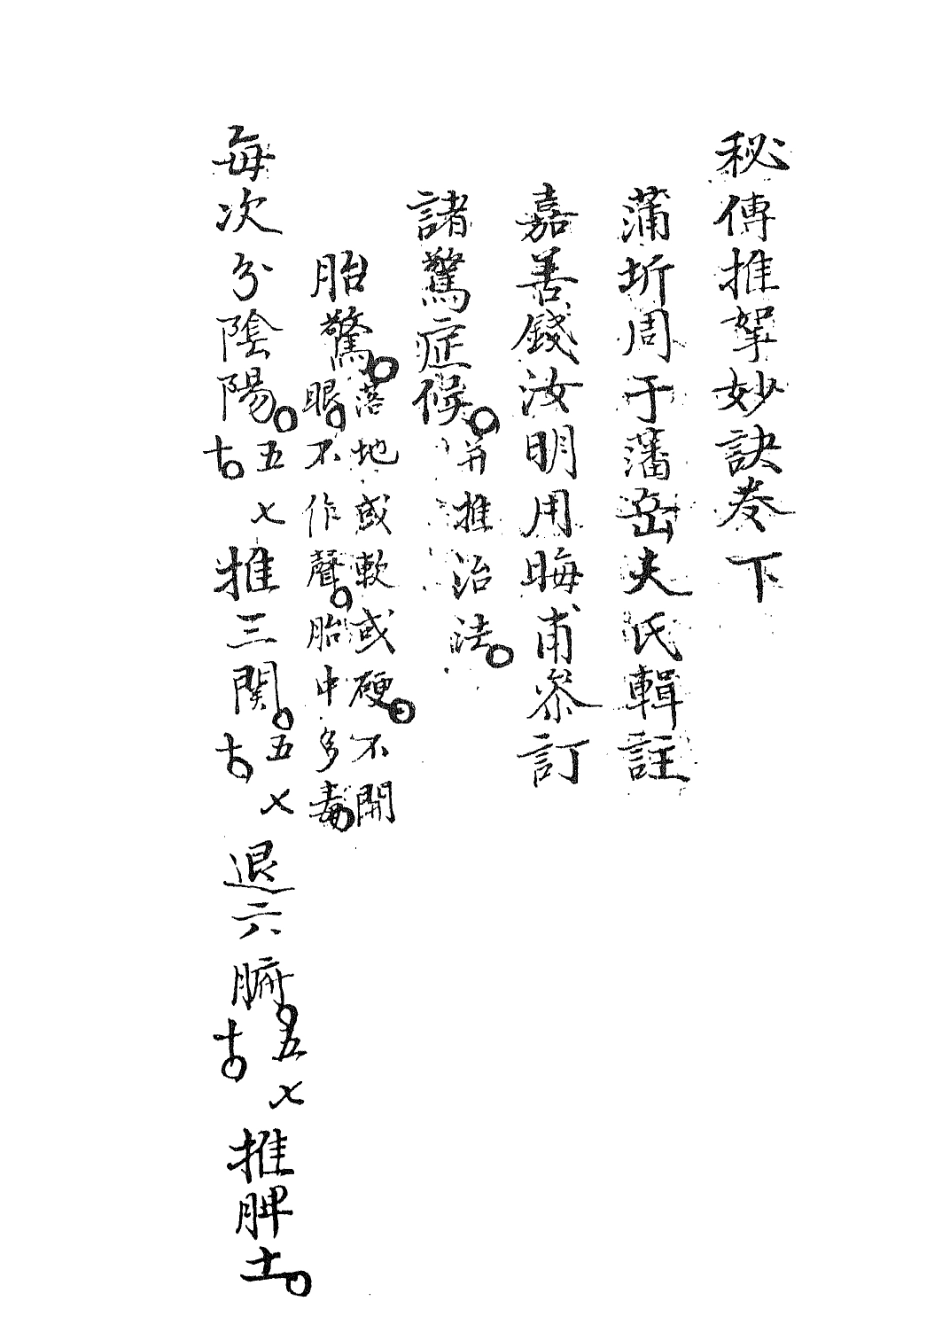 秘傳推拏妙訣卷下
蒲圻周于藩岳夫氏輯註
嘉善錢汝明用晦甫參訂
諸驚症候。并推治法。
胎驚。落地或軟或硬。不開眼。不作聲。胎中多毒。
每次分陰陽。五七十。推三関。五七十。退六腑。五七十。推脾土。